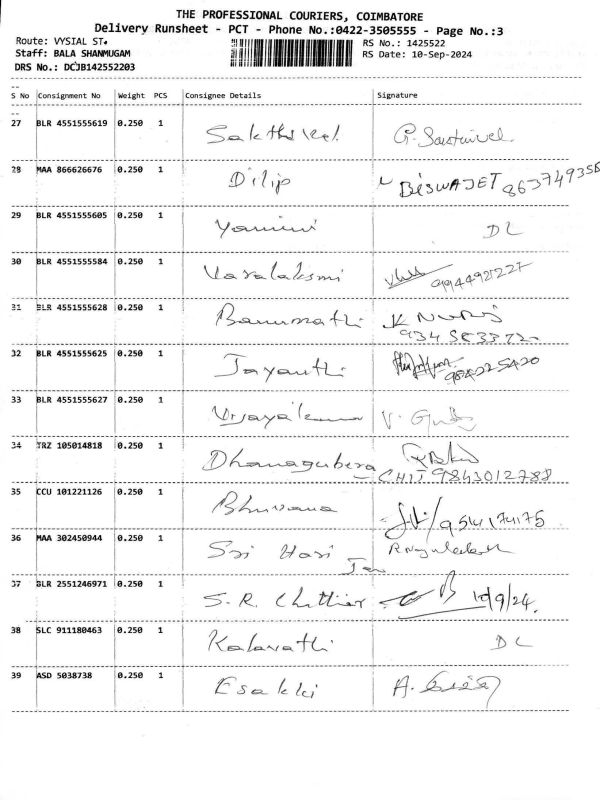 THE PROFESSIONAL COURIERS, COIMBATORE
Delivery Runsheet - PCT - Phone No.:0422-3505555 - Page No.:3
Route: VYSIAL ST.
RS No.: 1425522
Staff: BALA SHANMUGAM
RS Date: 10-Sep-2024
DRS No.: DCJB142552203
S No Consignment No Weight PCS Consignee Details Signature
27 BLR 4551555619 0.250 1 Sakthivel
28 MAA 866626676 0.250 1 Dilip BISWAJET
29 BLR 4551555605 0.250 1 Yamini DL
30 BLR 4551555584 0.250 1 Varalaksmi
31 BLR 4551555628 0.250 1 Banumathi
32 BLR 4551555625 0.250 1 Jayanthi
33 BLR 4551555627 0.250 1 Vijayakumar
34 TRZ 105014818 0.250 1 Dhanagubera
CHIT 9843012788
35 CCU 101221126 0.250 1 Bhuvana
36 MAA 302450944 0.250 1 Sri Hari
37 BLR 2551246971 0.250 1 S.R. Chettiar 10/9/24.
38 SLC 911180463 0.250 1 Kalavathi DL
39 ASD 5038738 0.250 1 Esakki